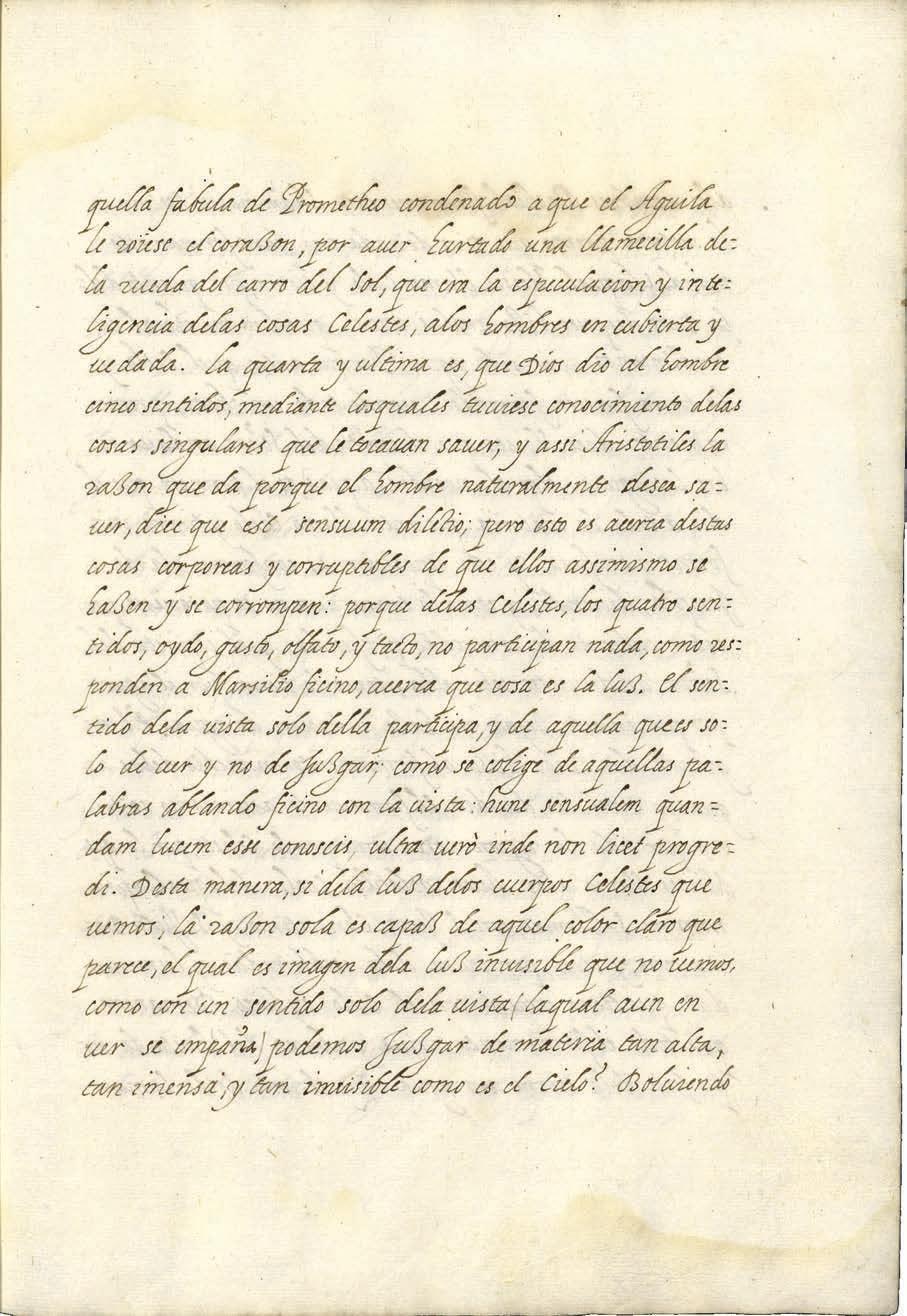 quella fabula de Prometheo condenado a que el Aguila
le roiese el coraßon, por auer hurtado una llamecilla de=
la rueda del carro del Sol, que era la especulacion y inte=
ligencia delas cosas Celestes, alos hombres encubierta y
uedada. la quarta y ultima es, que Dios dio al hombre
cinco sentidos, mediante losquales tuuiese conocimiento delas
cosas singulares que le tocauan sauer, y assi Aristotiles la
raßon que da porque el hombre naturalmente desea sa=
uer, dice que est sensuum dilectio; pero esto es acerca destas
cosas corporeas y corruptibles de que ellos assimismo se
haßen y se corrompen: porque delas Celestes, los quatro sen=
tidos, oydo, gusto, olfato, y tacto, no participan nada, como res=
ponden a Marsilio ficino, acerca que cosa es la luß. El sen=
tido dela uista solo della participa, y de aquella que es so=
lo de uer y no de Jußgar; como se colige de aquellas pa=
labras ablando ficino con la uista: hunc sensualem quan=
dam lucem esse conoscis, ultra uerò inde non licet progre=
di. Desta manera, si dela luß delos cuerpos Celestes que
uemos, la raßon sola es capaß de aquel color claro que
parece, el qual es imagen dela luß inuisible que no uemos,
como con un sentido solo dela uista (laqual aun en
uer se empaña) podemos Jußgar de materia tan alta,
tan imensa, y tan inuisible como es el Cielo? Boluiendo